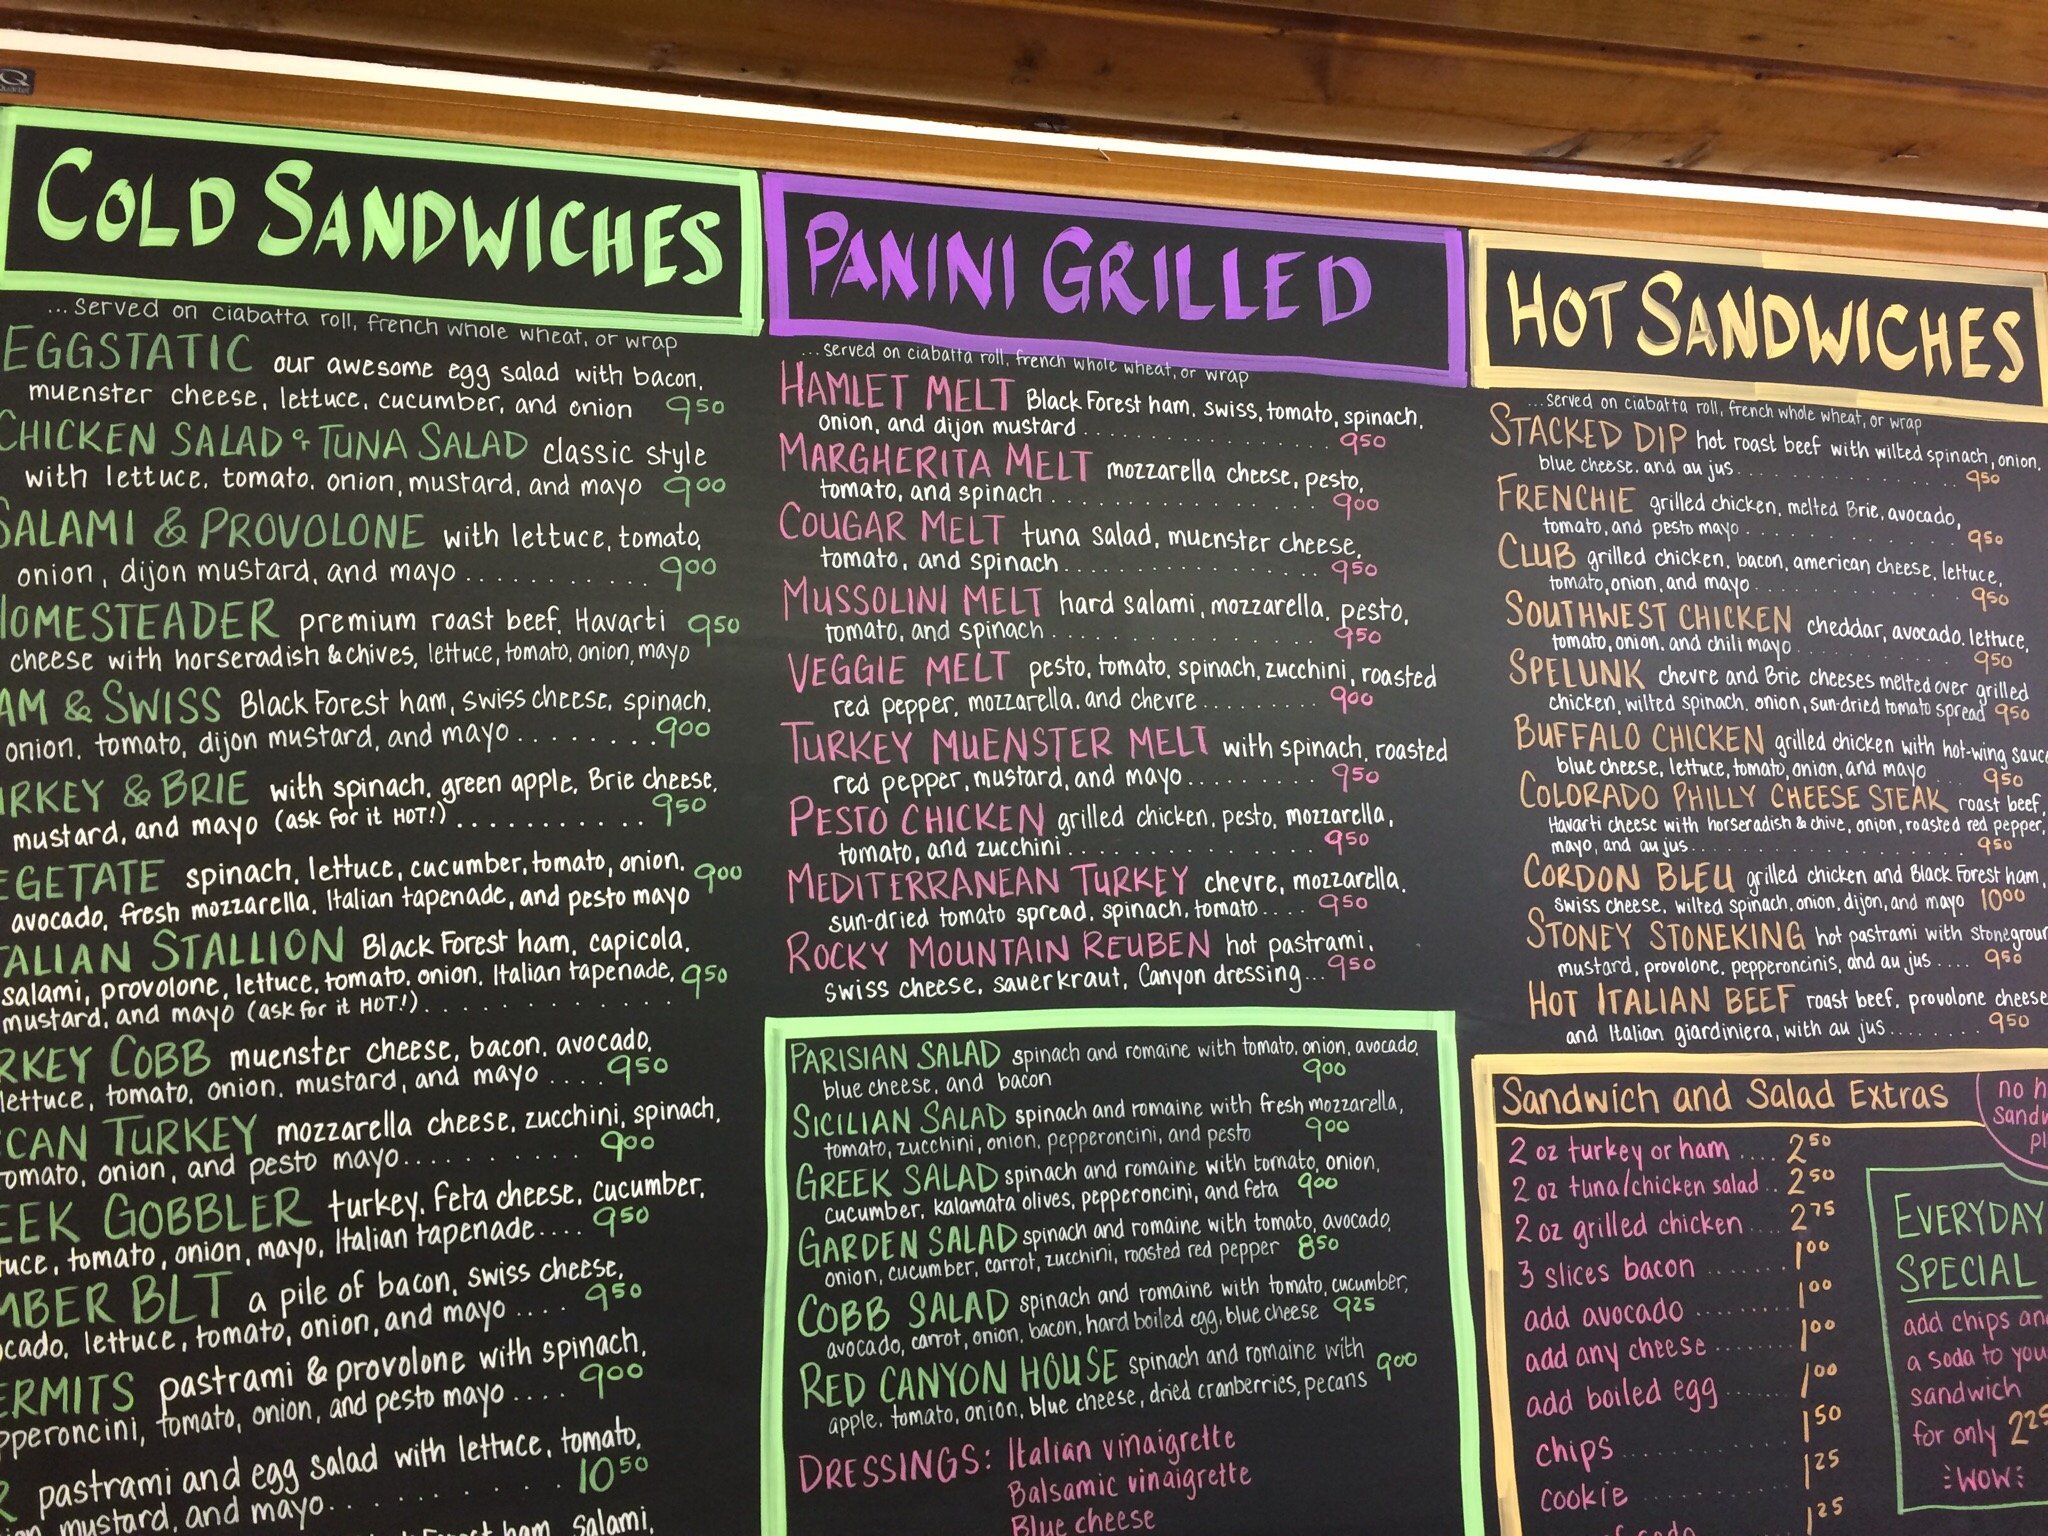 Q
Quartet
COLD SANDWICHES
...served on ciabatta roll, french whole wheat, or wrap
EGGSTATIC our awesome egg salad with bacon,
muenster cheese, lettuce, cucumber, and onion 9.50
CHICKEN SALAD or TUNA SALAD classic style
with lettuce, tomato, onion, mustard, and mayo 9.00
SALAMI & PROVOLONE with lettuce, tomato,
onion, dijon mustard, and mayo.......... 9.00
HOMESTEADER premium roast beef, Havarti 9.50
cheese with horseradish & chives, lettuce, tomato, onion, mayo
AM & SWISS Black Forest ham, swiss cheese, spinach,
onion, tomato, dijon mustard, and mayo........ 9.00
RKEY & BRIE with spinach, green apple, Brie cheese,
mustard, and mayo (ask for it HOT!).......... 9.50
EGETATE spinach, lettuce, cucumber, tomato, onion, 9.00
avocado, fresh mozzarella, Italian tapenade, and pesto mayo
TALIAN STALLION Black Forest ham, capicola,
salami, provolone, lettuce, tomato, onion, Italian tapenade, 9.50
mustard, and mayo (ask for it HOT!)..........
RKEY COBB muenster cheese, bacon, avocado,
lettuce, tomato, onion, mustard, and mayo.... 9.50
CAN TURKEY mozzarella cheese, zucchini, spinach,
tomato, onion, and pesto mayo.......... 9.00
EEK GOBBLER turkey, Feta cheese, cucumber,
tuce, tomato, onion, mayo, Italian tapenade.... 9.50
MBER BLT a pile of bacon, swiss cheese,
ocado, lettuce, tomato, onion, and mayo.... 9.50
ERMITS pastrami & provolone with spinach,
pperoncini, tomato, onion, and pesto mayo.... 9.00
pastrami and egg salad with lettuce, tomato,
mustard, and mayo.......... 10.50
Forest ham, salami,
PANINI GRILLED
...served on ciabatta roll, french whole wheat, or wrap
HAMLET MELT Black Forest ham, swiss, tomato, spinach,
onion, and dijon mustard.......... 9.50
MARGHERITA MELT mozzarella cheese, pesto,
tomato, and spinach.......... 9.00
COUGAR MELT tuna salad, muenster cheese,
tomato, and spinach.......... 9.50
MUSSOLINI MELT hard salami, mozzarella, pesto,
tomato, and spinach.......... 9.50
VEGGIE MELT pesto, tomato, spinach, zucchini, roasted
red pepper, mozzarella, and chevre........ 9.00
TURKEY MUENSTER MELT with spinach, roasted
red pepper, mustard, and mayo........ 9.50
PESTO CHICKEN grilled chicken, pesto, mozzarella,
tomato, and zucchini.......... 9.50
MEDITERRANEAN TURKEY chevre, mozzarella,
sun-dried tomato spread, spinach, tomato.... 9.50
ROCKY MOUNTAIN REUBEN hot pastrami,
swiss cheese, sauerkraut, Canyon dressing... 9.50
PARISIAN SALAD spinach and romaine with tomato, onion, avocado,
blue cheese, and bacon 9.00
SICILIAN SALAD spinach and romaine with fresh mozzarella,
tomato, zucchini, onion, pepperoncini, and pesto 9.00
GREEK SALAD spinach and romaine with tomato, onion,
cucumber, kalamata olives, pepperoncini, and feta 9.00
GARDEN SALAD spinach and romaine with tomato, avocado,
onion, cucumber, carrot, zucchini, roasted red pepper 8.50
COBB SALAD spinach and romaine with tomato, cucumber,
avocado, carrot, onion, bacon, hard boiled egg, blue cheese 9.25
RED CANYON HOUSE spinach and romaine with
apple, tomato, onion, blue cheese, dried cranberries, pecans 9.00
DRESSINGS: Italian vinaigrette
Balsamic vinaigrette
Blue cheese
HOT SANDWICHES
...served on ciabatta roll, french whole wheat, or wrap
STACKED DIP hot roast beef with wilted spinach, onion,
blue cheese, and au jus.......... 9.50
FRENCHIE grilled chicken, melted Brie, avocado,
tomato, and pesto mayo.......... 9.50
CLUB grilled chicken, bacon, american cheese, lettuce,
tomato, onion, and mayo.......... 9.50
SOUTHWEST CHICKEN cheddar, avocado, lettuce,
tomato, onion, and chili mayo.......... 9.50
SPELUNK chevre and Brie cheeses melted over grilled
chicken, wilted spinach, onion, sun-dried tomato spread 9.50
BUFFALO CHICKEN grilled chicken with hot-wing sauce
blue cheese, lettuce, tomato, onion, and mayo.... 9.50
COLORADO PHILLY CHEESE STEAK roast beef,
Havarti cheese with horseradish & chive, onion, roasted red pepper,
mayo, and au jus.......... 9.50
CORDON BLEU grilled chicken and Black Forest ham,
swiss cheese, wilted spinach, onion, dijon, and mayo 10.00
STONEY STONEKING hot pastrami with stonegroun
mustard, provolone, pepperoncinis, and au jus.... 9.50
HOT ITALIAN BEEF roast beef, provolone cheese
and Italian giardiniera, with au jus........ 9.50
Sandwich and Salad Extras
2 oz turkey or ham.... 2.50
2 oz tuna/chicken salad.. 2.50
2 oz grilled chicken... 2.75
3 slices bacon........ 1.00
add avocado.......... 1.00
add any cheese....... 1.00
add boiled egg....... 1.00
chips.......... 1.50
cookie.......... 1.25
1.25
no h
sandw
pl
EVERYDAY
SPECIAL
add chips and
a soda to you
sandwich
for only 2.25
WOW!